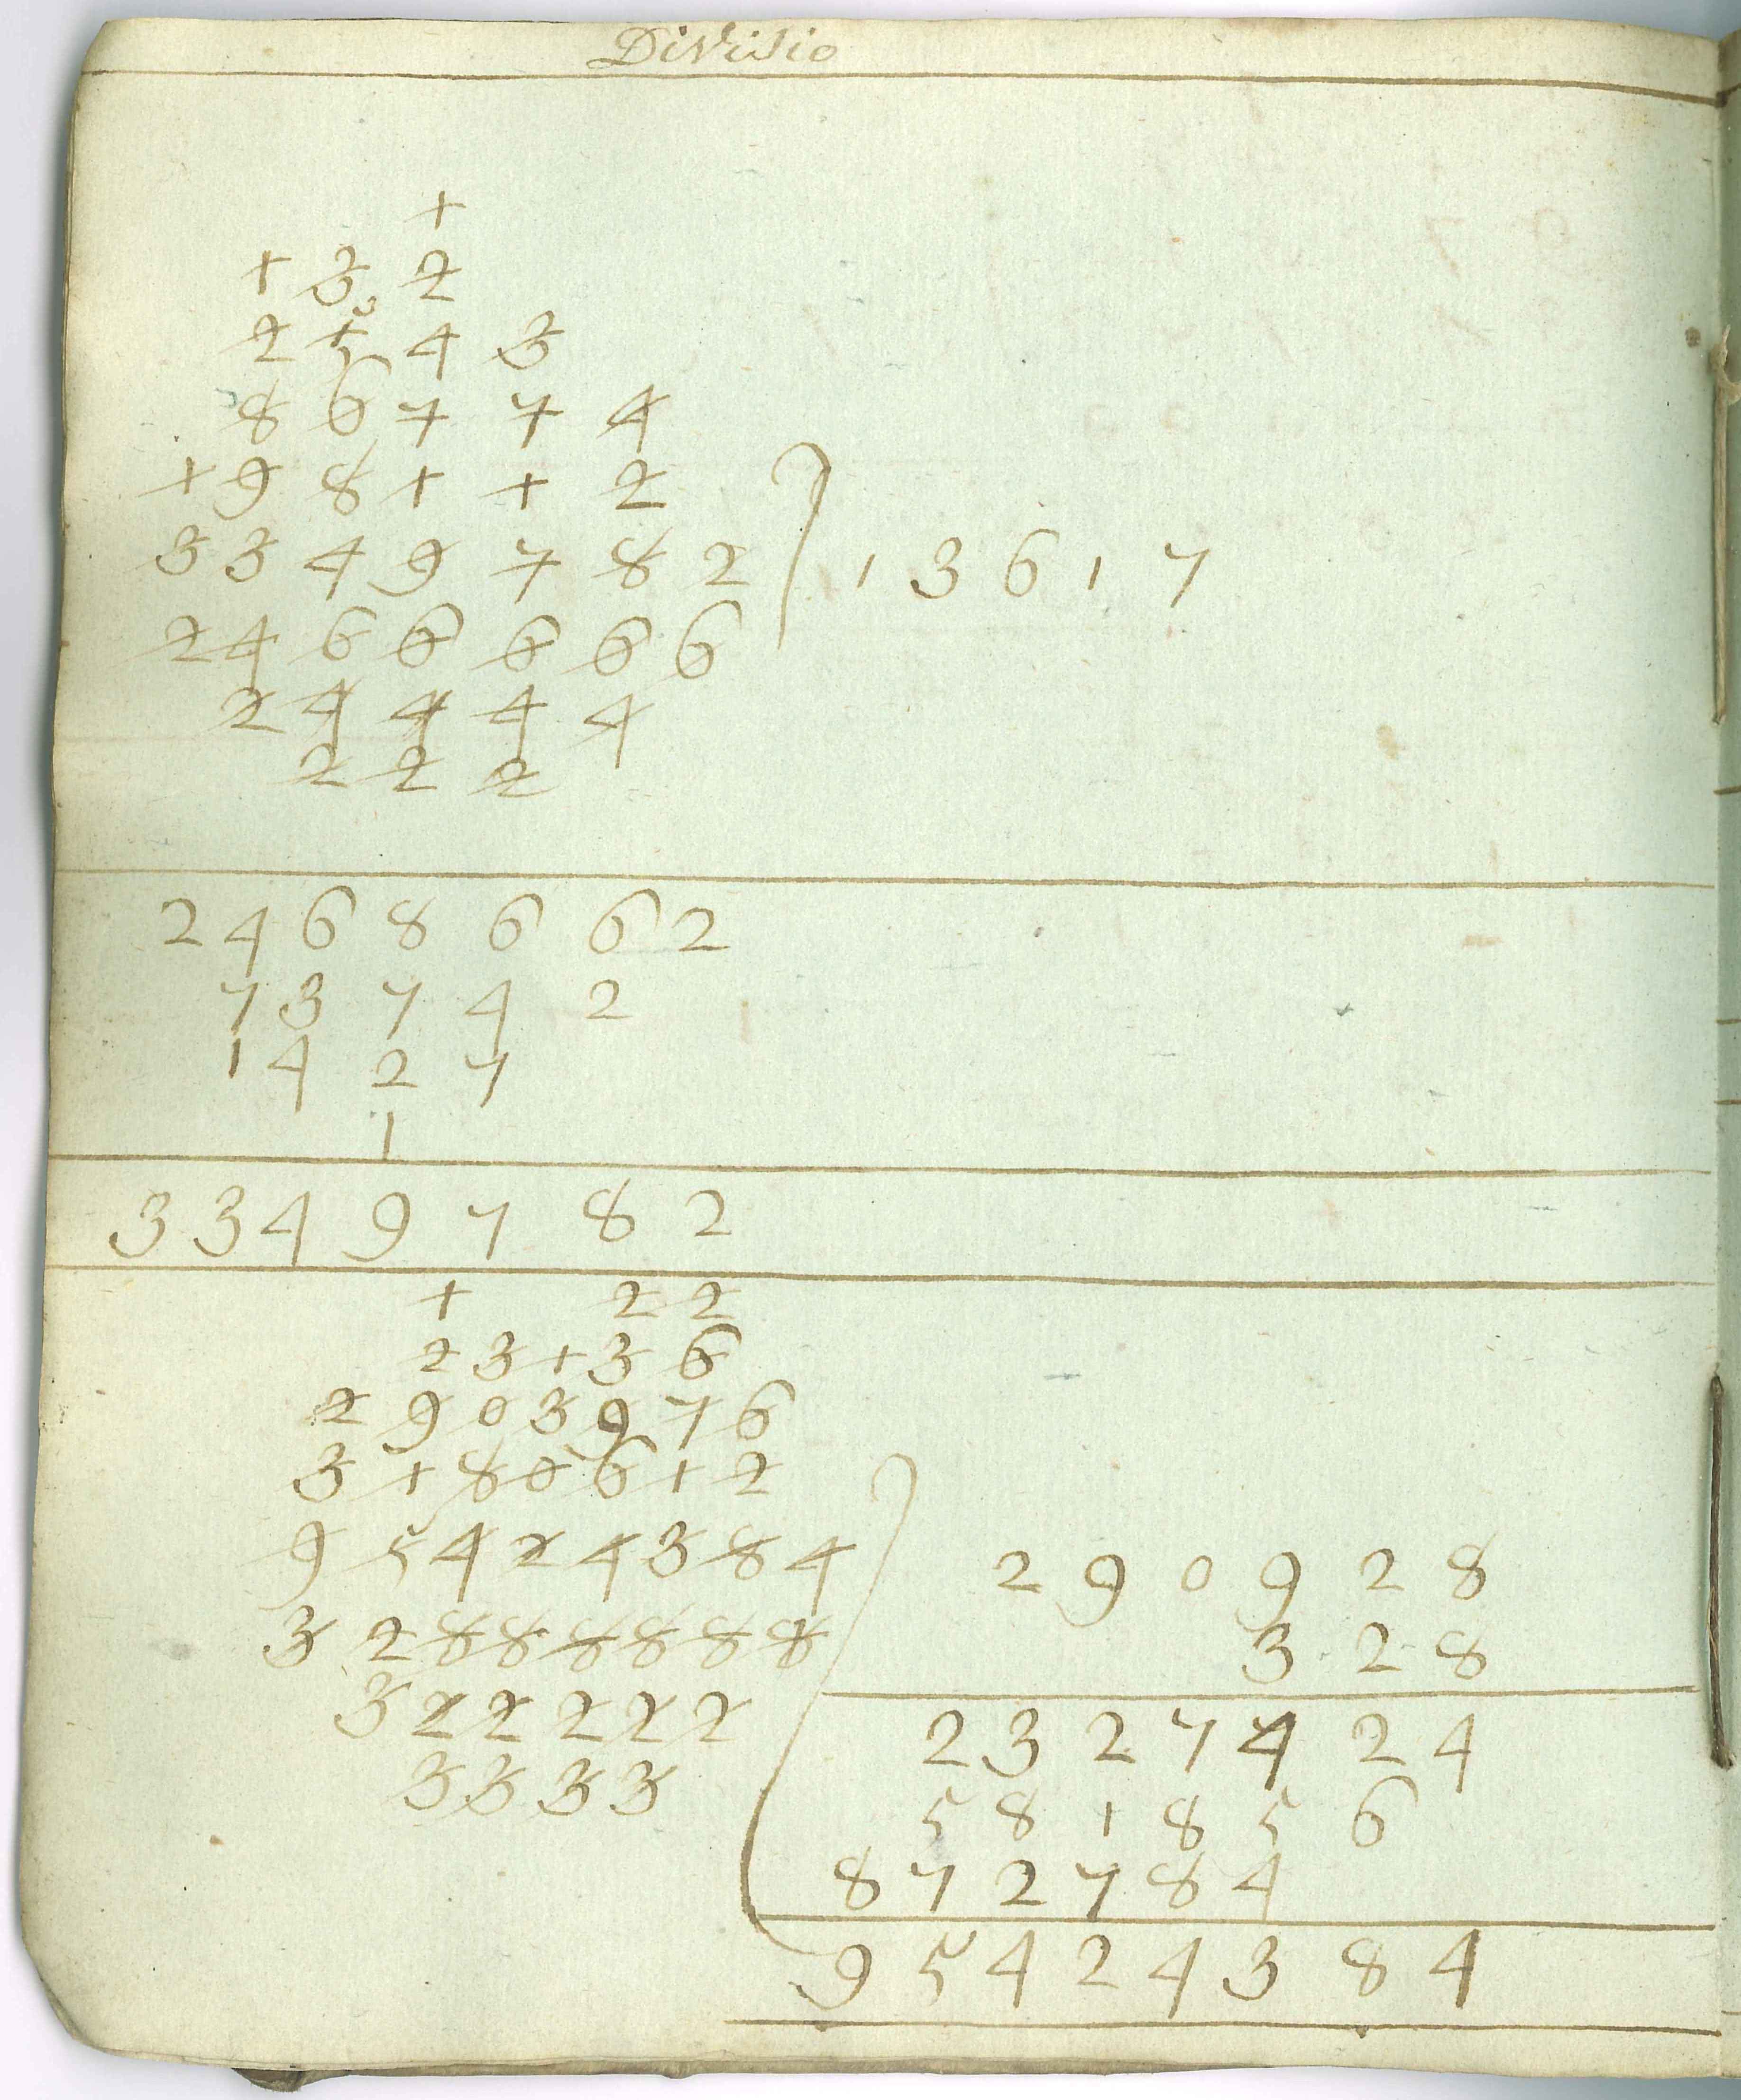 Divisio
1
1 3 2
2 5 4 3
8 6 7 7 4
1 9 8 1 1 2
3 3 4 9 7 8 2 ) 1 3 6 1 7
2 4 6 6 6 6 6
2 4 4 4 4
2 2 2
2 4 6 8 6 6 2
7 3 7 4 2
1 4 2 7
1
3 3 4 9 7 8 2
1 2 2
2 3 1 3 6
2 9 0 3 9 7 6
3 1 8 0 6 1 2
9 5 4 2 4 3 8 4 ) 2 9 0 9 2 8
3 2 8 8 8 8 8 8 3 2 8
3 2 2 2 2 2 2 3 2 7 4 2 4
3 3 3 3 5 8 1 8 5 6
8 7 2 7 8 4
9 5 4 2 4 3 8 4